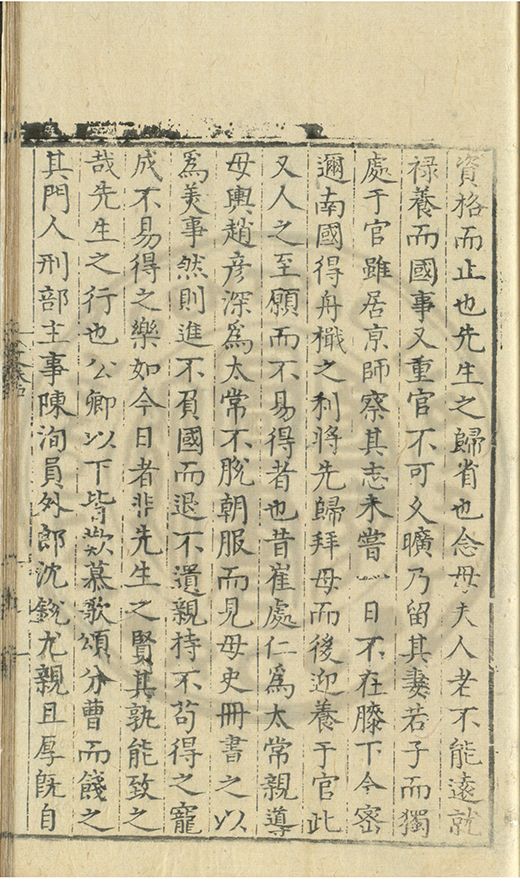 資格而止也先生之歸省也念母夫人老不能遠就
祿養而國事又重官不可久曠乃留其妻若子而獨
處于官雖居京師察其志未嘗一日不在膝下今密
邇南國得舟檝之利將先歸拜母而後迎養于官此
又人之至願而不易得者也昔崔處仁為太常親導
母輿趙彥深為太常不脫朝服而見母史冊書之以
為美事然則進不負國而退不遺親持不苟得之寵
成不易得之樂如今日者非先生之賢其孰能致之
哉先生之行也公卿以下皆歎慕歌頌分曹而餞之
其門人刑部主事陳洵員外郎沈銳尤親且厚旣自